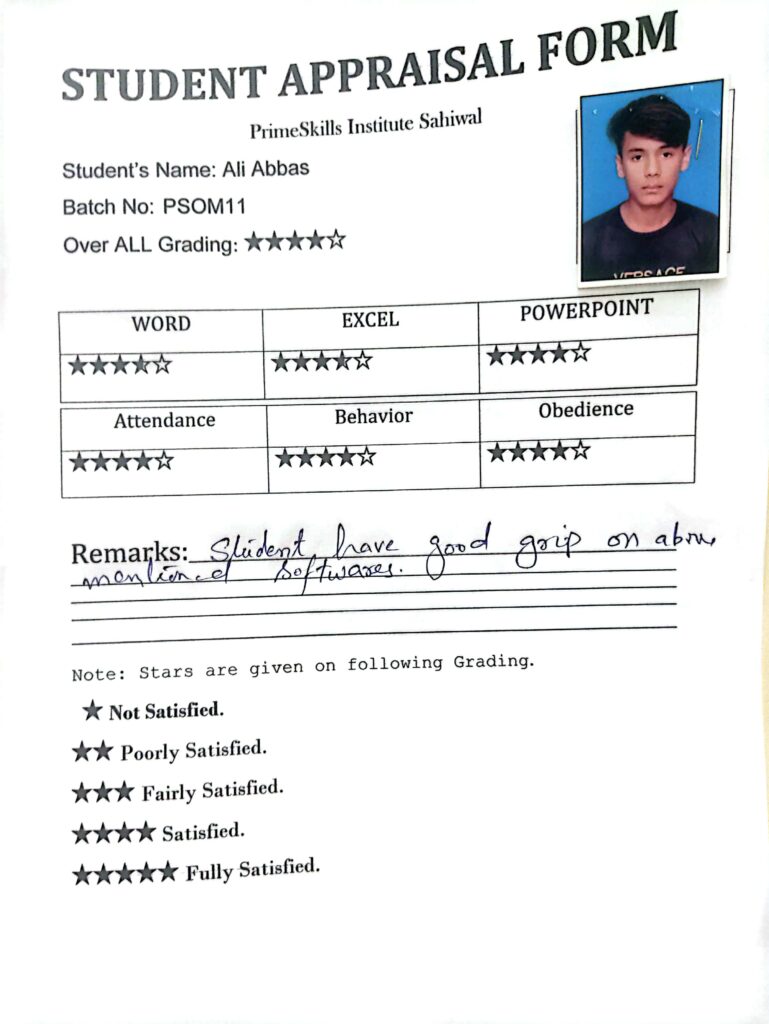 STUDENT APPRAISAL FORM
PrimeSkills Institute Sahiwal
Student's Name: Ali Abbas
Batch No: PSOM11
Over ALL Grading: ★★★★☆
VERSACE
WORD EXCEL POWERPOINT
★★★★☆ ★★★★☆ ★★★★☆
Attendance Behavior Obedience
★★★★☆ ★★★★☆ ★★★★☆
Remarks: Student have good grip on above
mentioned softwares.
Note: Stars are given on following Grading.
★ Not Satisfied.
★★ Poorly Satisfied.
★★★ Fairly Satisfied.
★★★★ Satisfied.
★★★★★ Fully Satisfied.